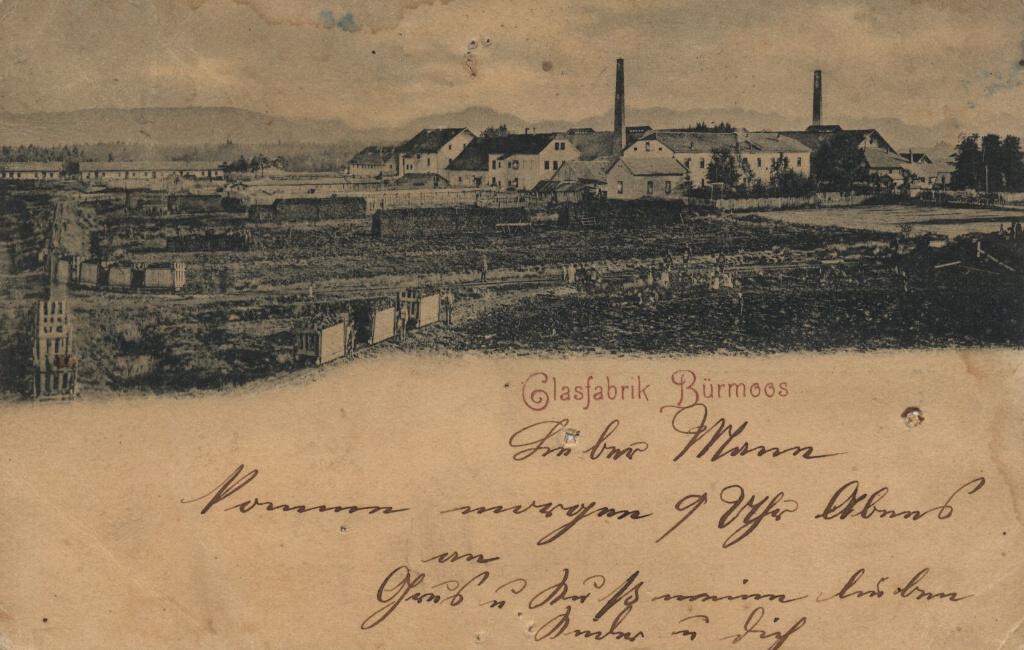 Glasfabrik Bürmoos
Lieber Mann
Komme morgen 9 Uhr Abens
an
Grus u Kuß meine lieben
Kinder u dich